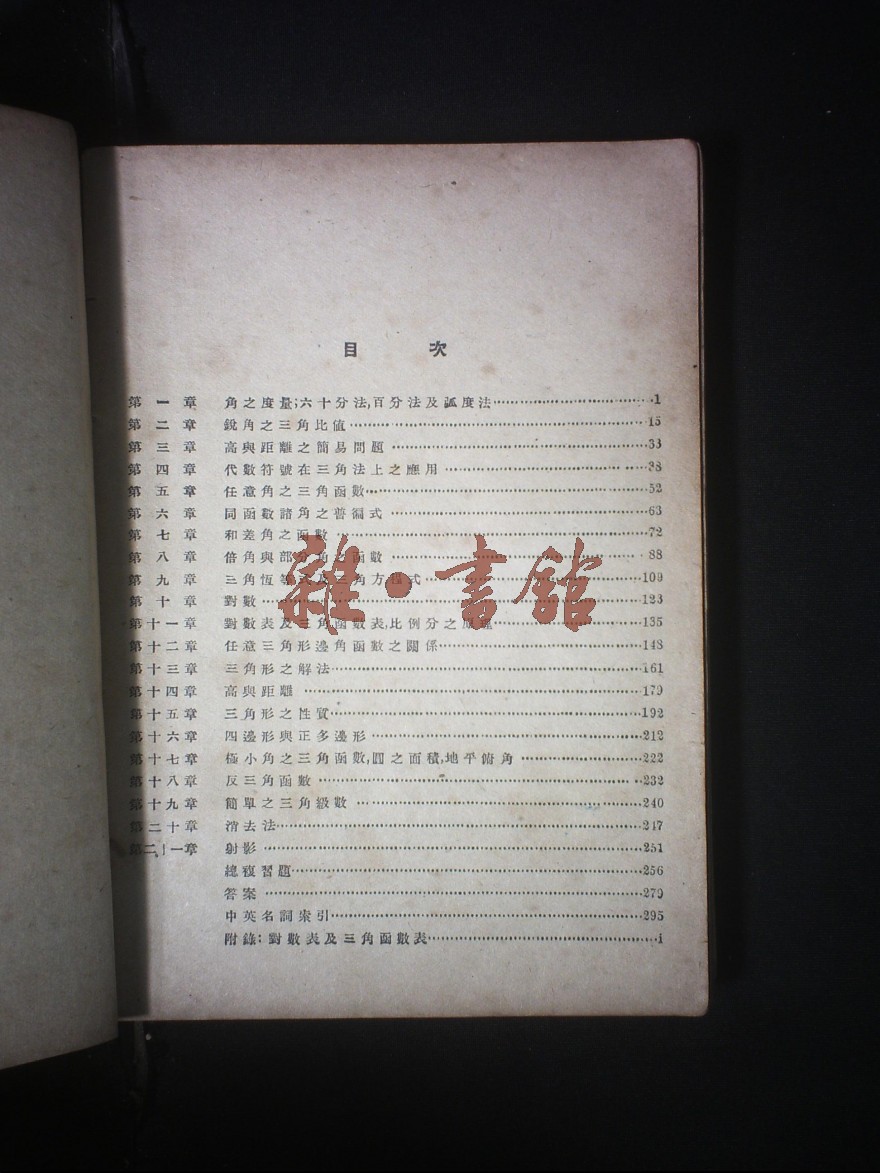 目 次
第一章 角之度量;六十分法,百分法及弧度法……1
第二章 銳角之三角比值……15
第三章 高與距離之簡易問題……33
第四章 代數符號在三角法上之應用……38
第五章 任意角之三角函數……52
第六章 同函數諸角之普徧式……63
第七章 和差角之函數……72
第八章 倍角與部分角之函數……88
第九章 三角恆等式及三角方程式……109
第十章 對數……123
第十一章 對數表及三角函數表,比例分之原理……135
第十二章 任意三角形邊角函數之關係……148
第十三章 三角形之解法……161
第十四章 高與距離……179
第十五章 三角形之性質……192
第十六章 四邊形與正多邊形……212
第十七章 極小角之三角函數,圓之面積,地平俯角……222
第十八章 反三角函數……232
第十九章 簡單之三角級數……240
第二十章 消去法……247
第二十一章 射影……251
總複習題……256
答案……279
中英名詞索引……295
附錄:對數表及三角函數表……i
雜·書館